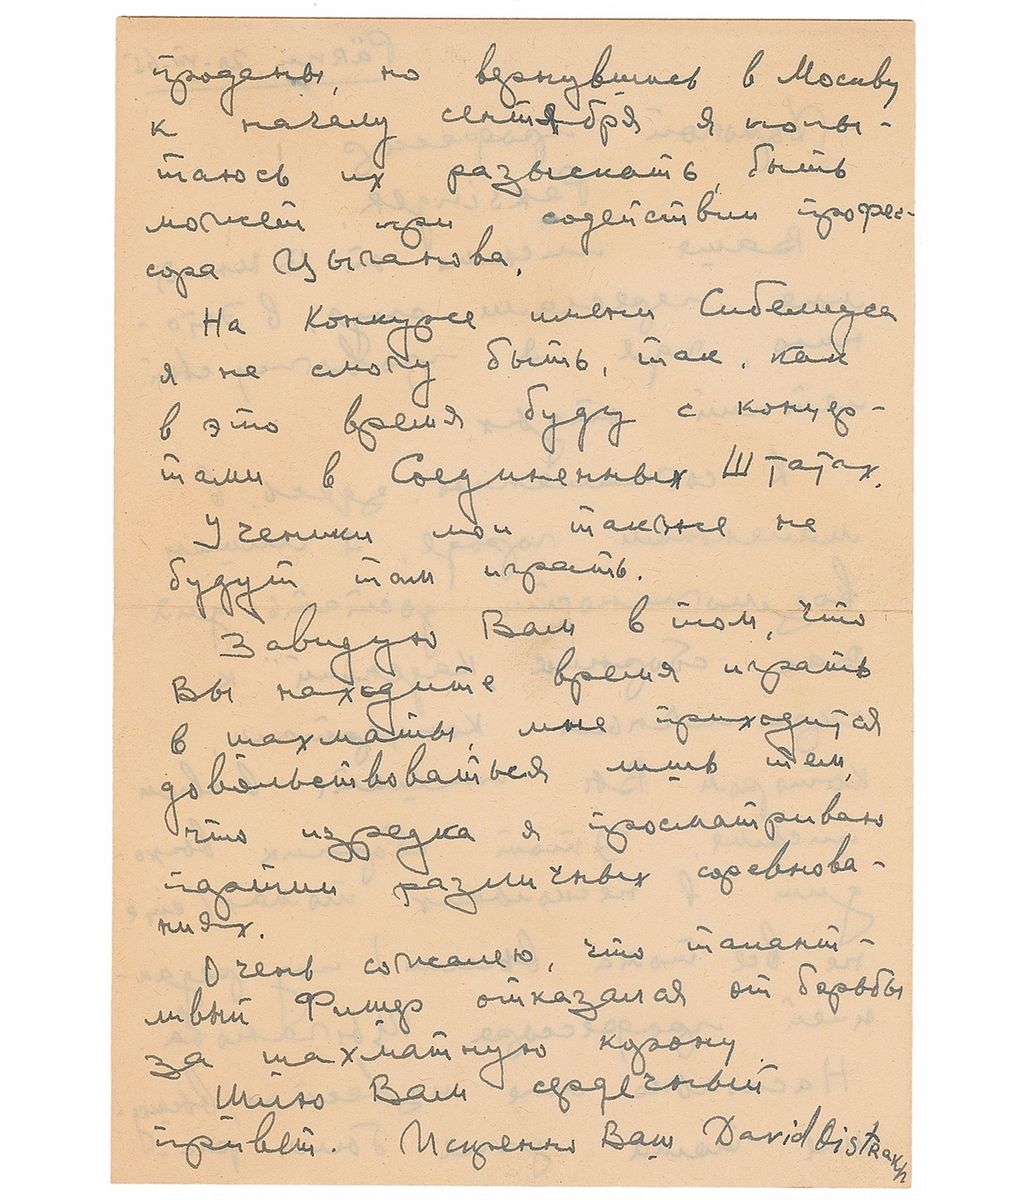 проданы, но вернувшись в Москву
к началу сентября я попы-
таюсь их разыскать, быть
может при содействии профес-
сора Цыганова.
На конкурсе имени Сибелиуса
я не смогу быть, так как
в это время буду с концер-
тами в Соединенных Штатах.
Ученики мои также не
будут там играть.
Завидую Вам в том, что
Вы находите время играть
в шахматы, мне приходится
довольствоваться лишь тем,
что изредка я просматриваю
партии различных соревнова-
ниях.
Очень сожалею, что талант-
ливый Фишер отказался от борьбы
за шахматную корону.
Шлю Вам сердечный
привет. Искренно Ваш David Oistrakh